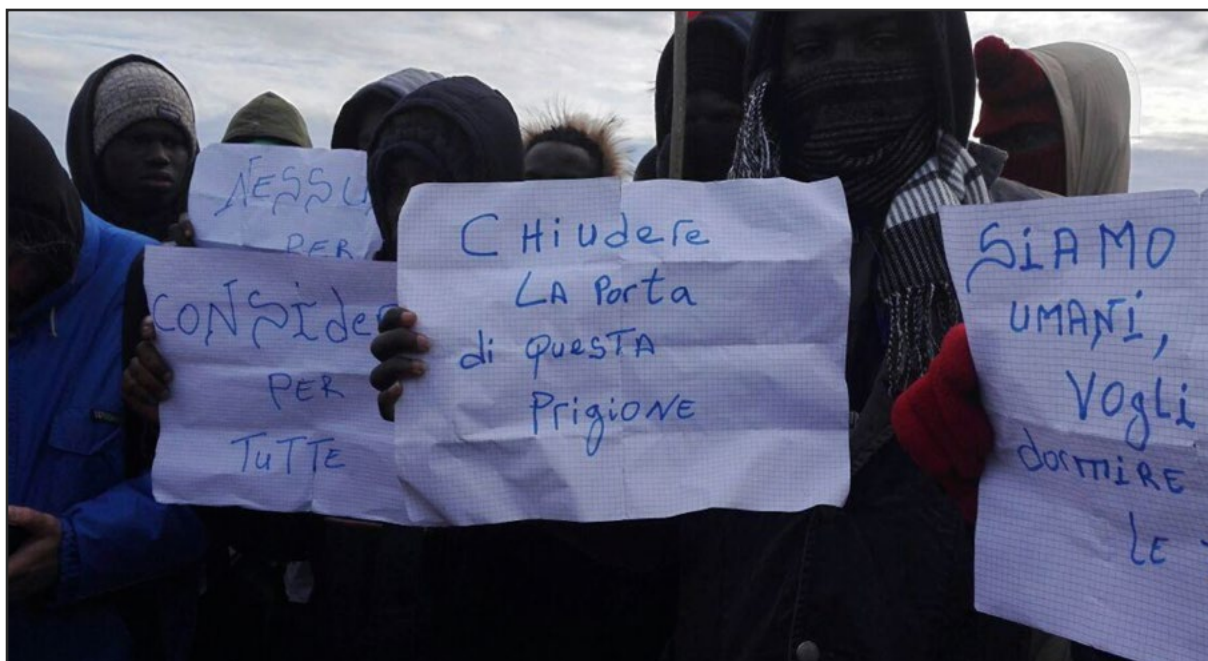 NESSU
PER
CONSIDE
PER
TUTTE
CHiudere
LA Porta
di QuesTA
PrigioNE
SiAMO
UMANi,
VOgLi
dorMiRE
LE